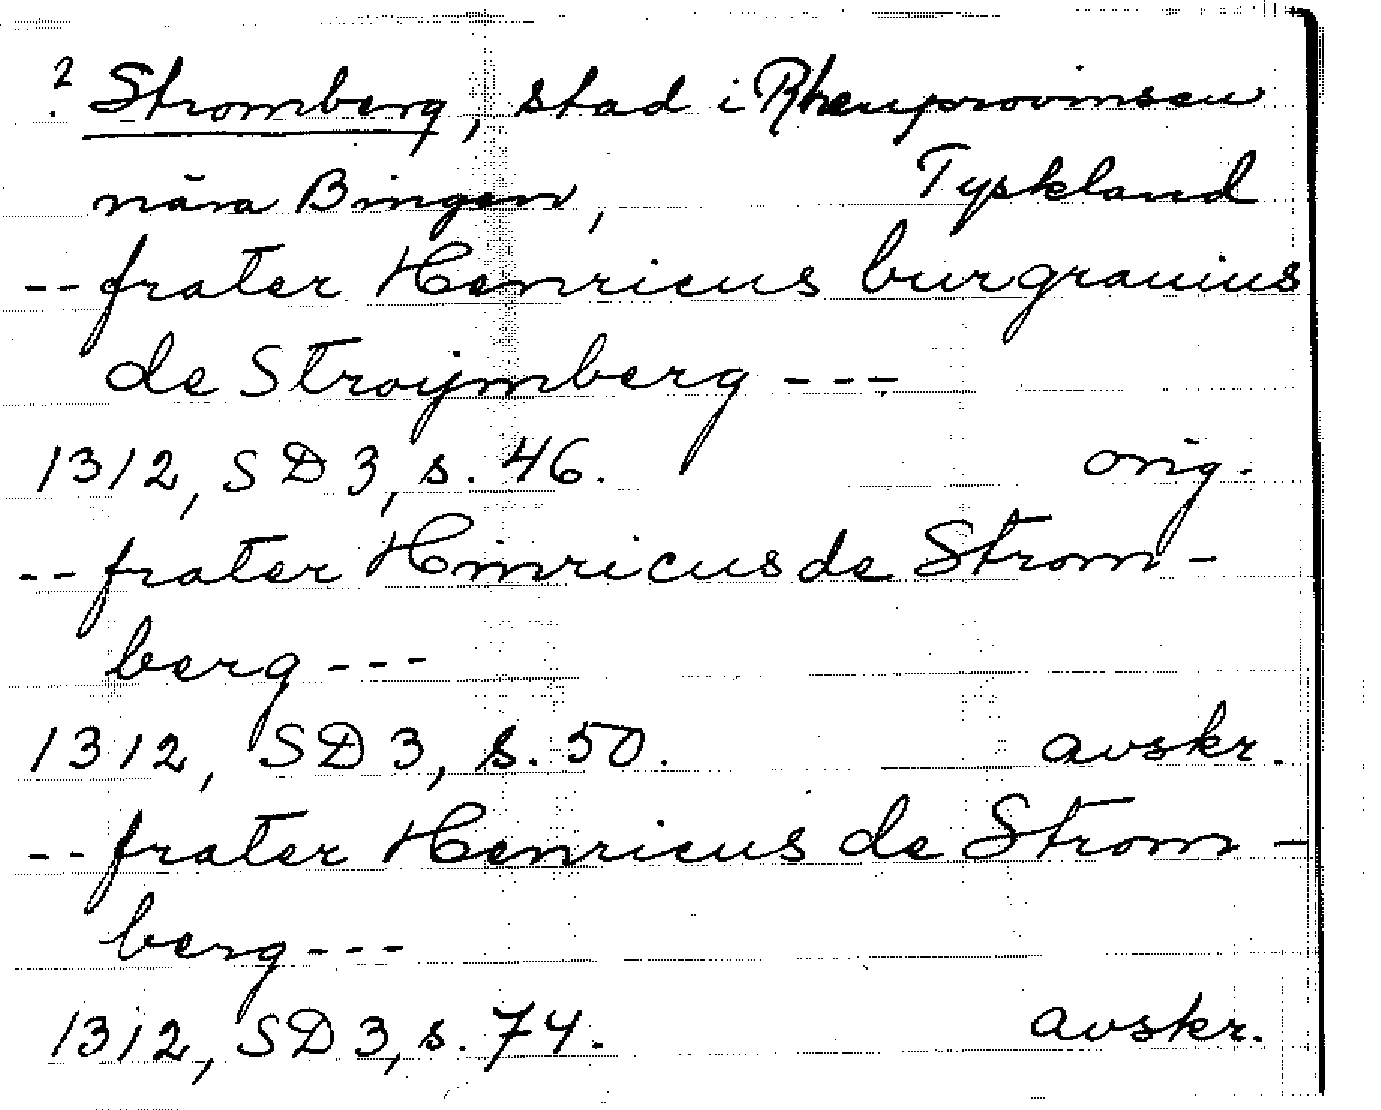 ? Stromberg, stad i Rhenprovinsen
nära Bingen, Tyskland
-- frater Henricus burgrauius
de Stroymberg ---
1312, SD 3, s. 46. orig.
-- frater Hinricus de Strom-
berg ---
1312, SD 3, s. 50. avskr.
-- frater Henricus de Strom-
berg ---
1312, SD 3, s. 74. avskr.